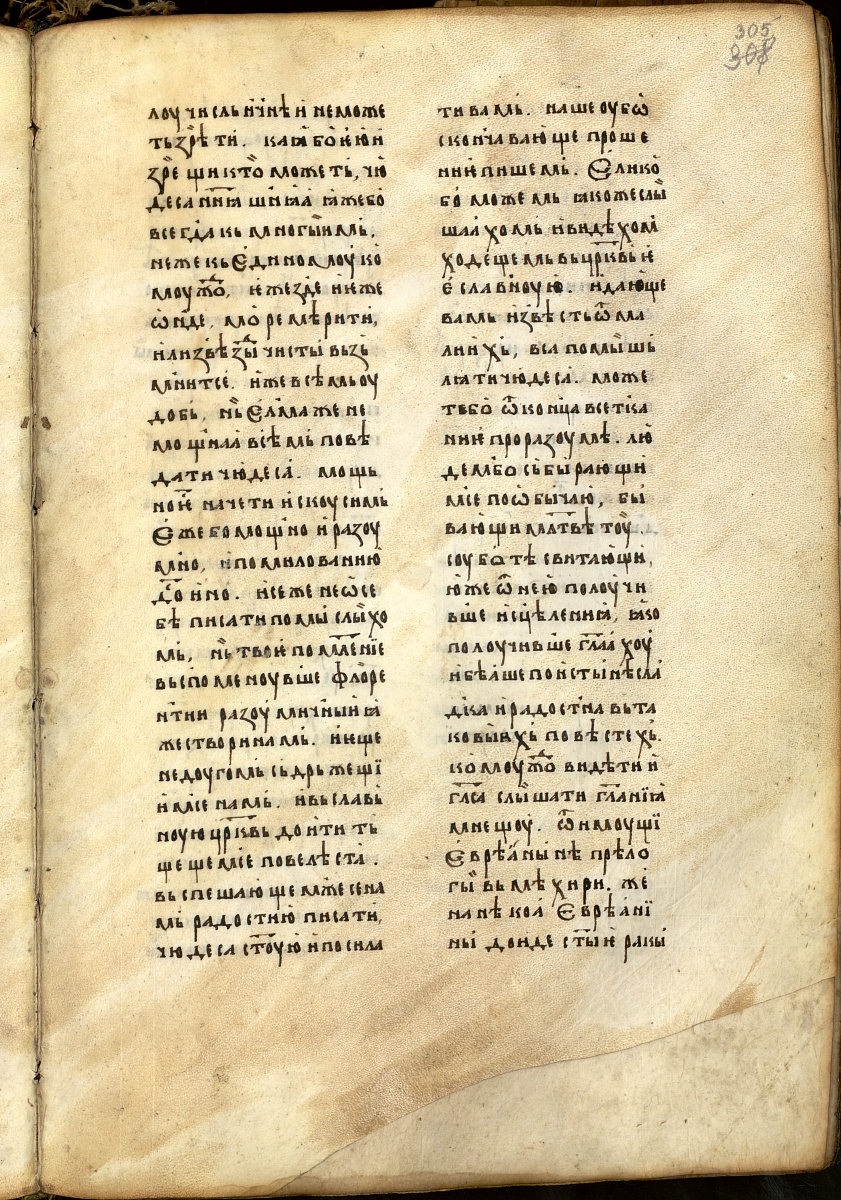 305
308
лоу числьн҄чнѣ и҆ не може
ть зрѣ ти. каꙗ бо҆ ю҆ и҆
зре щи кто̀ можеть, чю҆
деса нн҃ꙗ шнꙗꙗ ꙗже бо҆
всегда кь многыимь,
неже кь Е҆диномоу ко҆
моуж҃о, ѥже зде ѥже
ѡ҆нде, море мѣрити,
или ꙁвѣꙁды чисти вьзь
мнитсе. и҆же всѣмь оу
добь, нь Е҆лма же не
мощнаꙗ всѣмь повѣ
дати чю҆деса. мощь
ноѥ начети и҆скоусимь
Е҆же бо мощно и҆ разоу
мно, и҆ помилованню҆
до҃ино. и҆се же не ѡ҆ се
бѣ писати помыслыхо
мь, нь твоѥ помл҃енїе
вьспоменоувше флѡре
нтїи разоумичныи ꙗ
же створи намь. и҆ѥще
недоугомь сьдрьжещї
имсе намь. и҆вь славь
ноую цр҃квь доити ть
щещемсе повелѣста.
вьспешающем же се на
мь радостию҆ писати,
чюдеса ст҃ою҆ и҆посила
ти вамь. наше оубѡ
скончавающе проше
ниѥ пишемь. Е҆лико
бо можемь ꙗкоже слы
шаахомь и҆видѣхом
ходещемь вь цр҃квь ѥ
е҆ славноую. и҆дающе
вамь и҆звѣсть ѿ ма
лиихь, всꙗ помышь
лꙗти чюдеса. може
те бо ѿ конца все тка
ниѥ проразоумѣ. лю
дем бо сьбырающи
мсе по ѡ҆бычаю, бы
вающи мл҃твѣ тоу.
соуботѣ свитающи,
ю҆же ѿ нею полоучи
вше и҆сцѣлениꙗ, ꙗко
полоучивьше гл҃аахоу
и҆бѣаше поистынѣ сла
дка и҆ радостна вь та
ковыихь повѣстехь.
комоуж҃о видѣти и
гл҃са слышати гл҃анїꙗ
мнещоу. ѿ имоущї
Е҆врѣаныне прѣло
гы вь мѣхири. же
на нѣкоа Е҆врѣанї
ны донде ст҃ыѥ ракы